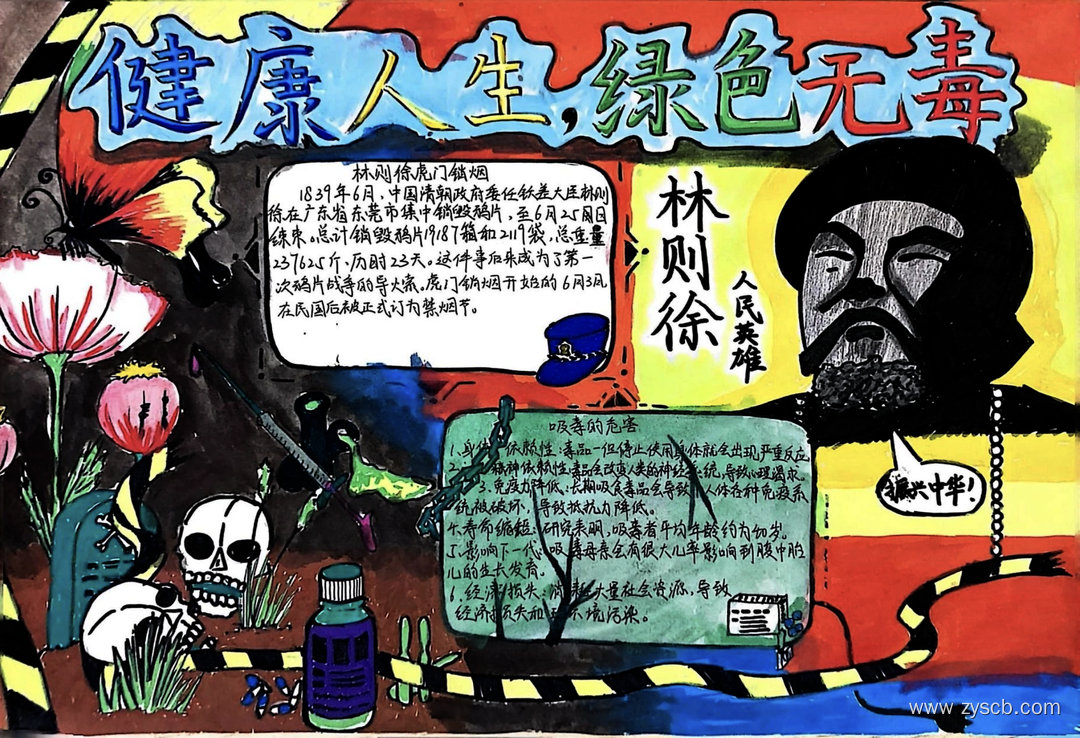 健康人生,绿色无毒
林则徐虎门销烟
1839年6月,中国清朝政府委任钦差大臣林则
徐在广东省东莞市集中销毁鸦片,至6月25日
结束。总计销毁鸦片19187箱和2119袋,总重量
237625斤,历时23天。这件事后来成为了第一
次鸦片战争的导火索。虎门销烟开始的6月3日
在民国后被正式订为禁烟节。
林则徐
人民英雄
振兴中华!
吸毒的危害
1.身体依赖性:毒品一但停止使用身体就会出现严重反应
2.精神依赖性:毒品会改变人类的神经系统,导致心理渴求
3.免疫力降低:长期吸食毒品会导致人体各种免疫系
统被破坏,导致抵抗力降低。
4.寿命缩短:研究表明,吸毒者平均年龄约为40岁。
5.影响下一代:吸毒母亲会有很大几率影响到腹中胎
儿的生长发育。
6.经济损失:消耗大量社会资源,导致
经济损失和环境污染。
www.zyscb.com